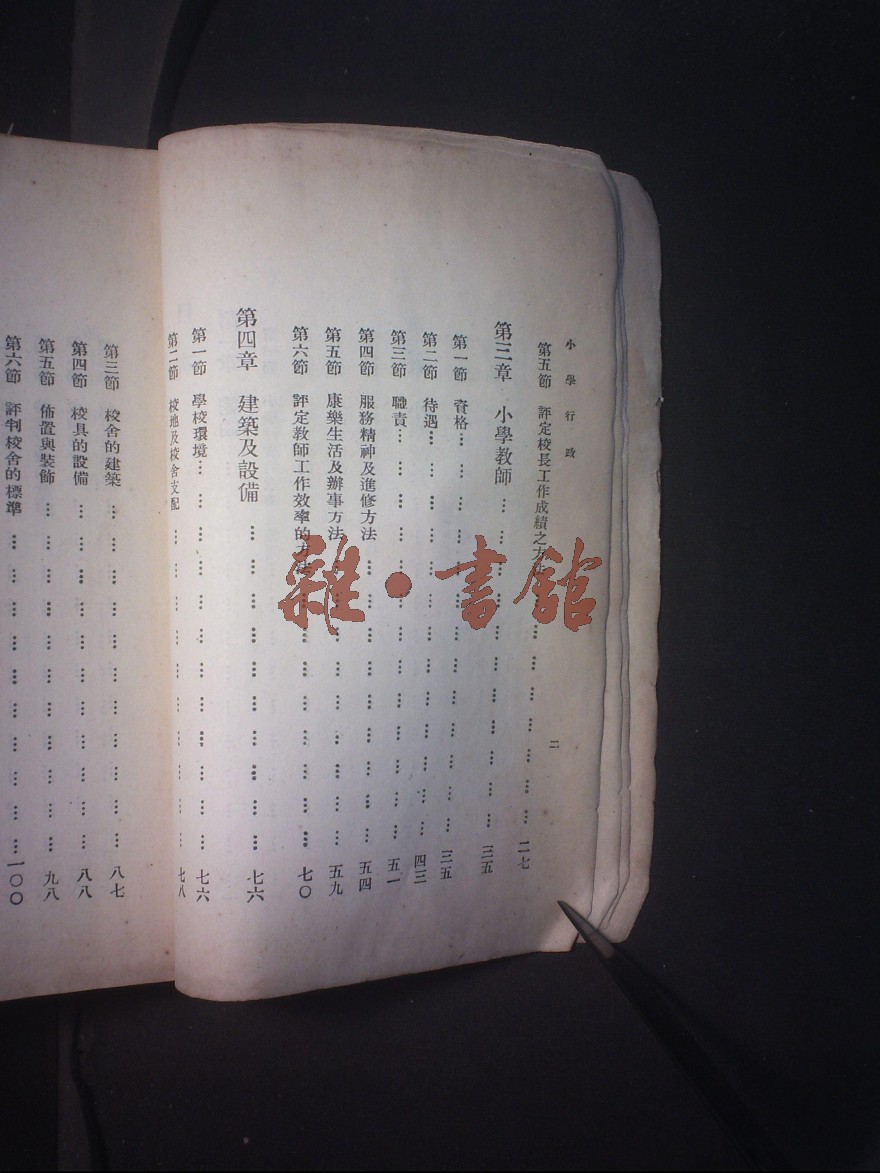 小學行政
二
第五節 評定校長工作成績之方法 … … … … … … … … 二七
第三章 小學教師 … … … … … … … … … … … … 三五
第一節 資格 … … … … … … … … … … … … … 三五
第二節 待遇 … … … … … … … … … … … … … 四三
第三節 職責 … … … … … … … … … … … … … 五一
第四節 服務精神及進修方法 … … … … … … … … … 五四
第五節 康樂生活及辦事方法 … … … … … … … … … 五九
第六節 評定教師工作效率的方法 … … … … … … … … 七〇
第四章 建築及設備 … … … … … … … … … … 七六
第一節 學校環境 … … … … … … … … … … … … 七六
第二節 校地及校舍支配 … … … … … … … … … … 七八
第三節 校舍的建築 … … … … … … … … … … … 八七
第四節 校具的設備 … … … … … … … … … … … 八八
第五節 佈置與裝飾 … … … … … … … … … … … 九八
第六節 評判校舍的標準 … … … … … … … … … … 一〇〇
雜·書館